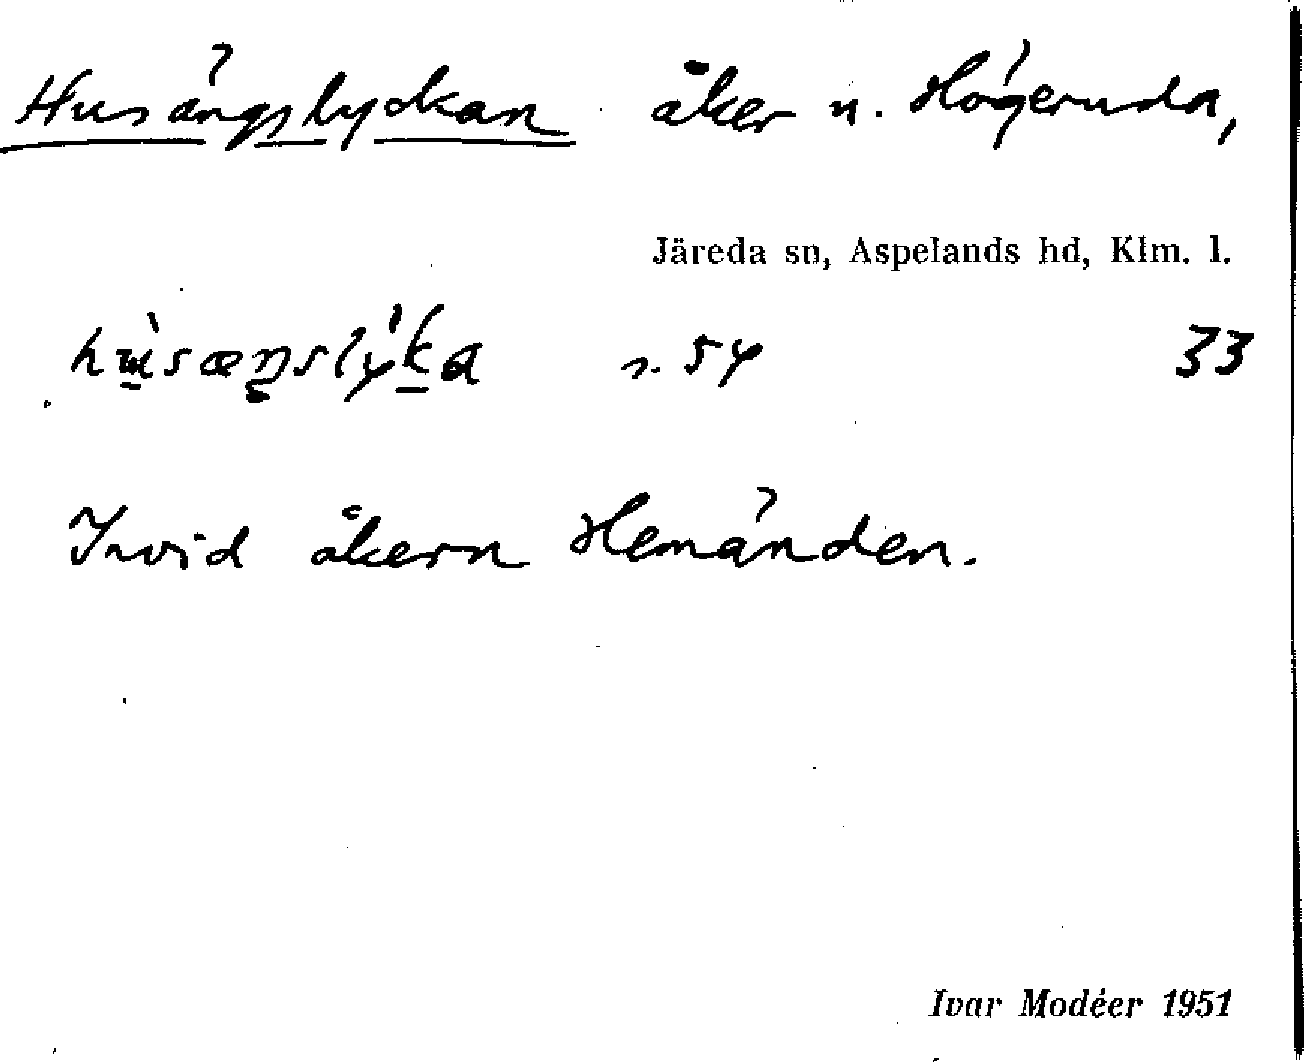 Husängslyckan åker n. Högeruda,
Järeda sn, Aspelands hd, Klm. l.
s. 54 33
Invid åkern Hemänden.
Ivar Modéer 1951